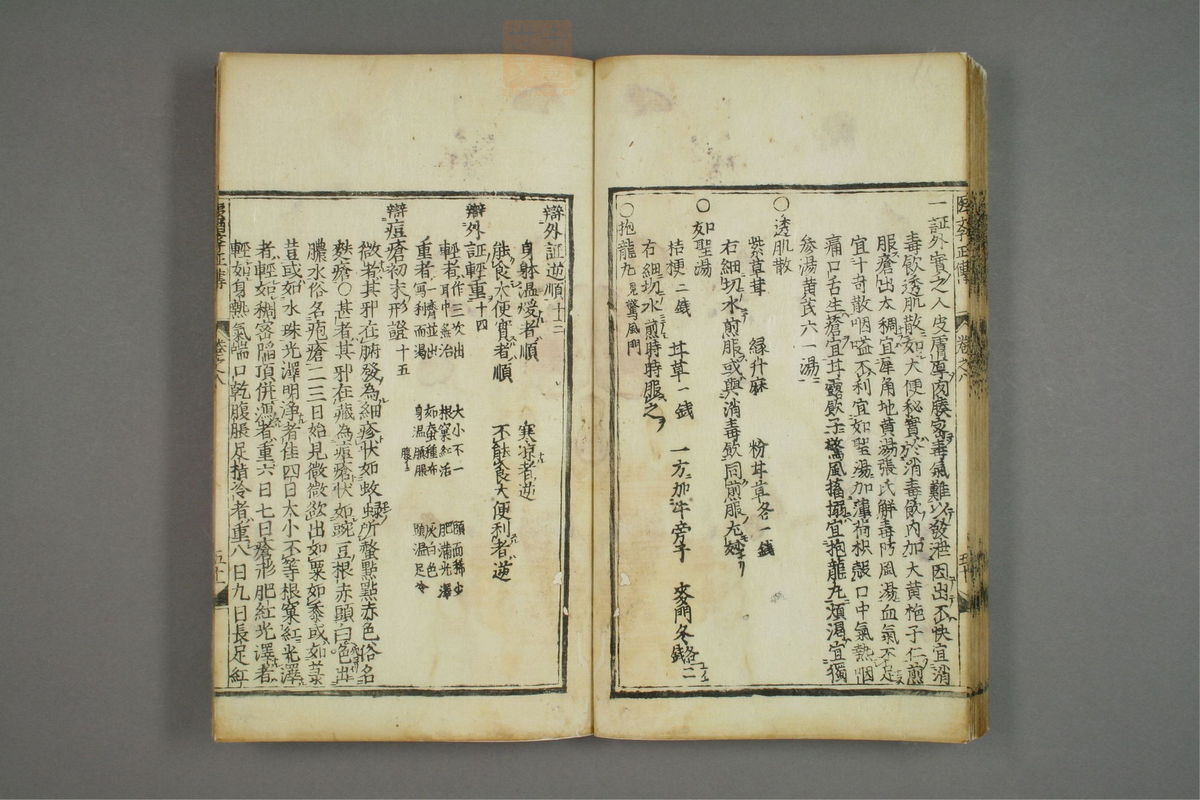 一証外實之人皮膚厚肉腠密毒氣難以發泄因出不快宜消
毒飲透肌散如大便秘實於消毒飲內加大黄梔子仁煎
服瘡出太稠宜犀角地黄湯張氏解毒防風湯血氣不足
宜十奇散咽嗌不利宜如聖湯加薄荷枳殼口中氣熱咽
痛口舌生瘡宜甘露飲子驚風搐搦宜抱龍丸煩渴宜獨
參湯黄芪六一湯
〇透肌散
紫草茸 緑升麻 粉甘草各一錢
右細切水煎服或與消毒飲同煎服尤妙
〇如聖湯
桔梗二錢 甘草一錢 一方加牛旁子 麥門冬各二錢
右細切水煎時時服之
〇抱龍丸見驚風門
辯外証逆順十三
身躰温煖者順 寒凉者逆
能食大便實者順 不能食大便利者逆
辯外証輕重十四
輕者作三次出 大小不一 頭面稀少
耳中無 根窠紅活 肥滿光澤
重者一齊並出 如蚕種布 灰白色
寫利而渴 身温腹脹 頭温足冷
辯痘瘡初未形證十五
微者其邪在腑發為細疹状如蚊蚤所螫點點赤色俗名
麩瘡〇甚者其邪在藏為痘瘡状如豌豆根赤頭白色出
膿水俗名疱瘡二三日始見微微欲出如粟如黍或如菉
荳或如水珠光澤明净者佳四日大小不等根窠紅光澤
者輕如稠密陷頂併瀉者重六日七日瘡形肥紅光澤者
輕如身熱氣喘口乾腹脹足指冷者重八日九日長足紅